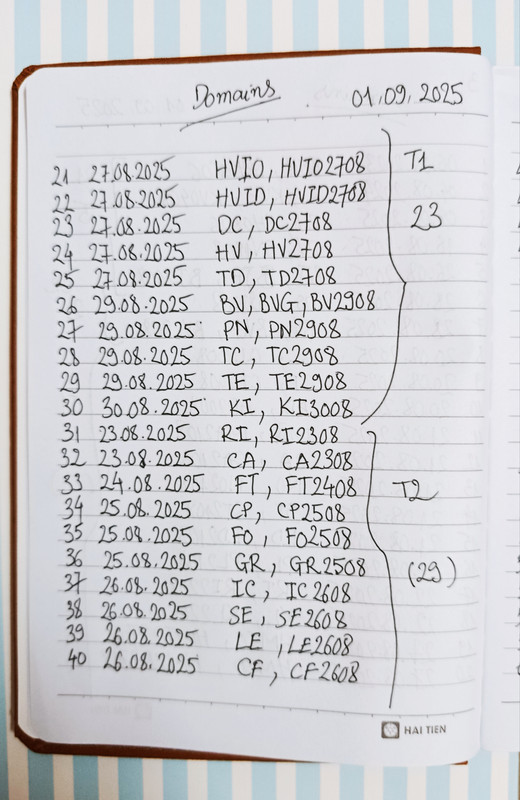 Domains 01.09.2025
21 27.08.2025 HVIO, HVIO2708 T1
22 27.08.2025 HVID, HVID2708
23 27.08.2025 DC, DC2708 23
24 27.08.2025 HV, HV2708
25 27.08.2025 TD, TD2708
26 29.08.2025 BV, BVG, BV2908
27 29.08.2025 PN, PN2908
28 29.08.2025 TC, TC2908
29 29.08.2025 TE, TE2908
30 30.08.2025 KI, KI3008
31 23.08.2025 RI, RI2308
32 23.08.2025 CA, CA2308
33 24.08.2025 FT, FT2408 T2
34 25.08.2025 CP, CP2508
35 25.08.2025 FO, FO2508
36 25.08.2025 GR, GR2508 (29)
37 26.08.2025 IC, IC2608
38 26.08.2025 SE, SE2608
39 26.08.2025 LE, LE2608
40 26.08.2025 CF, CF2608
HẢI TIẾN